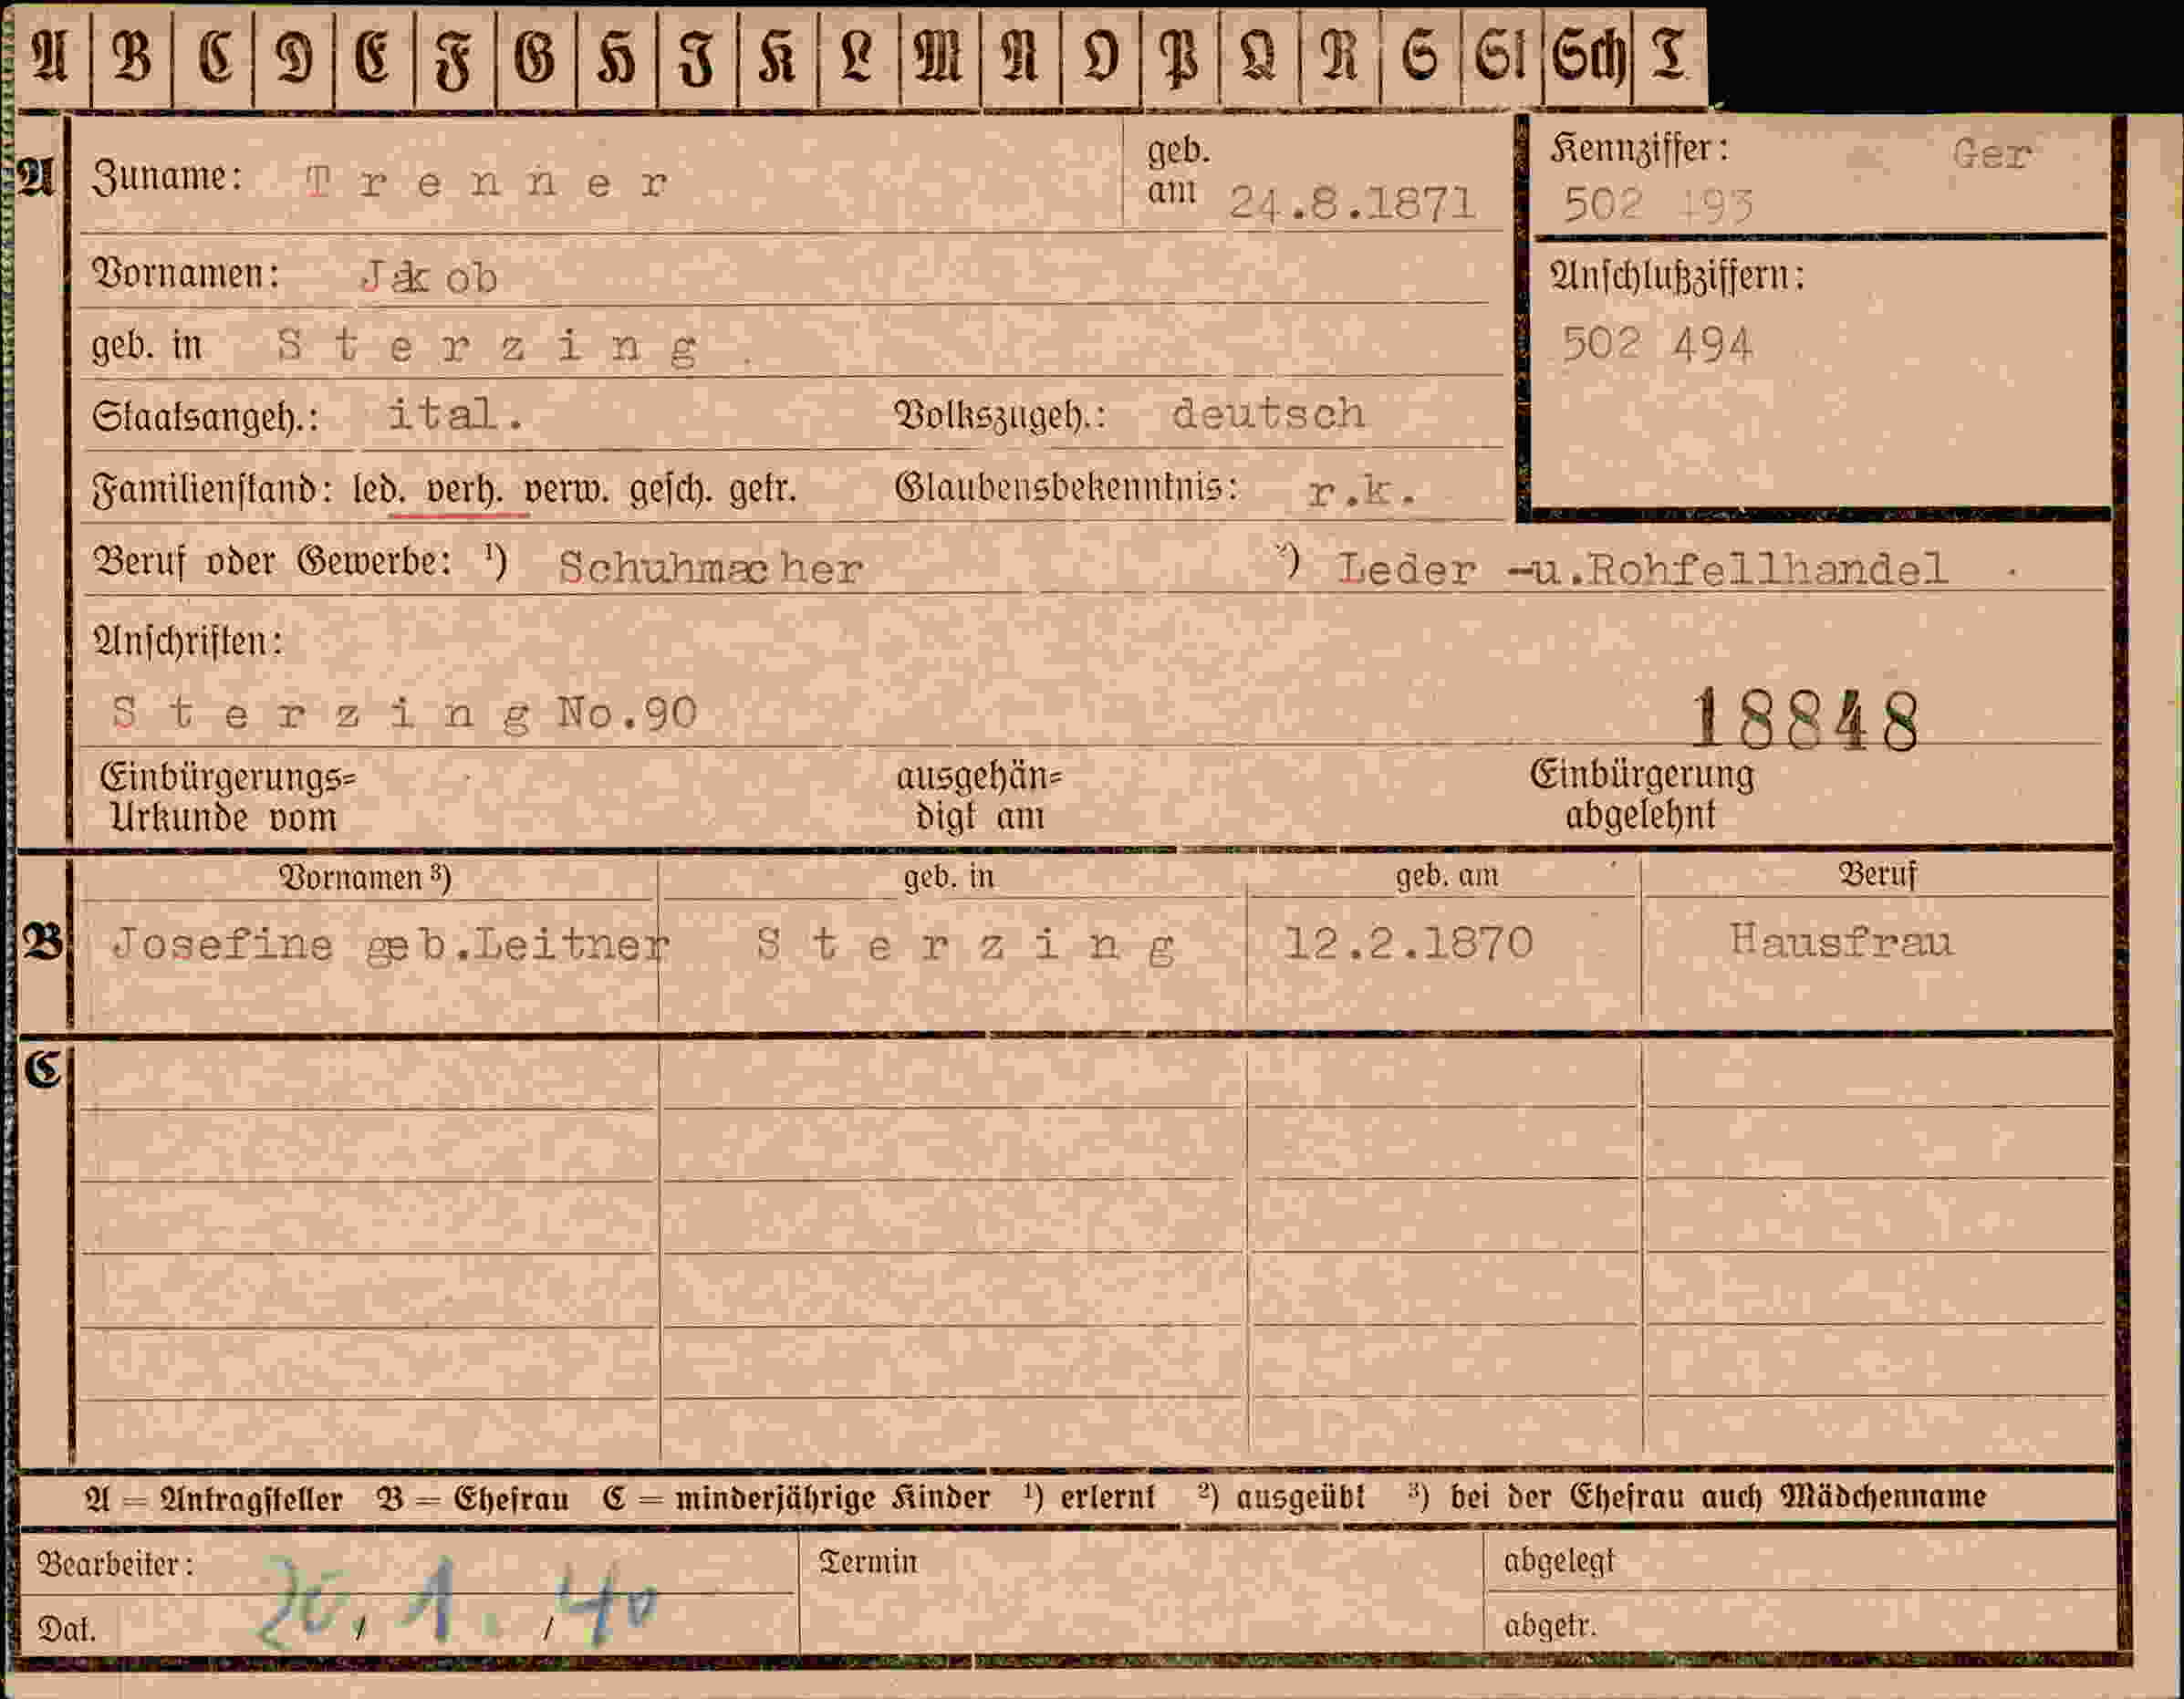 A B C D E F G H I K L M N O P Q R S St Sch T
A Zuname: Trenner geb. am 24.8.1871 Kennziffer: Ger
502 493
Vornamen: Jakob Anschlußziffern:
geb. in Sterzing. 502 494
Staatsangeh.: ital. Volkszugeh.: deutsch
Familienstand: led. verh. verw. gesch. getr. Glaubensbekenntnis: r.k.
Beruf oder Gewerbe: ¹) Schuhmacher ²) Leder -u.Rohfellhandel
Anschriften:
Sterzing No.90 18848
Einbürgerungs= ausgehän= Einbürgerung
Urkunde vom digt am abgelehnt
Vornamen ³) geb. in geb. am Beruf
B Josefine geb.Leitner Sterzing 12.2.1870 Hausfrau
C
A = Antragsteller B = Ehefrau C = minderjährige Kinder ¹) erlernt ²) ausgeübt ³) bei der Ehefrau auch Mädchenname
Bearbeiter: Termin abgelegt
Dat. 20. / 1. / 40 abgetr.